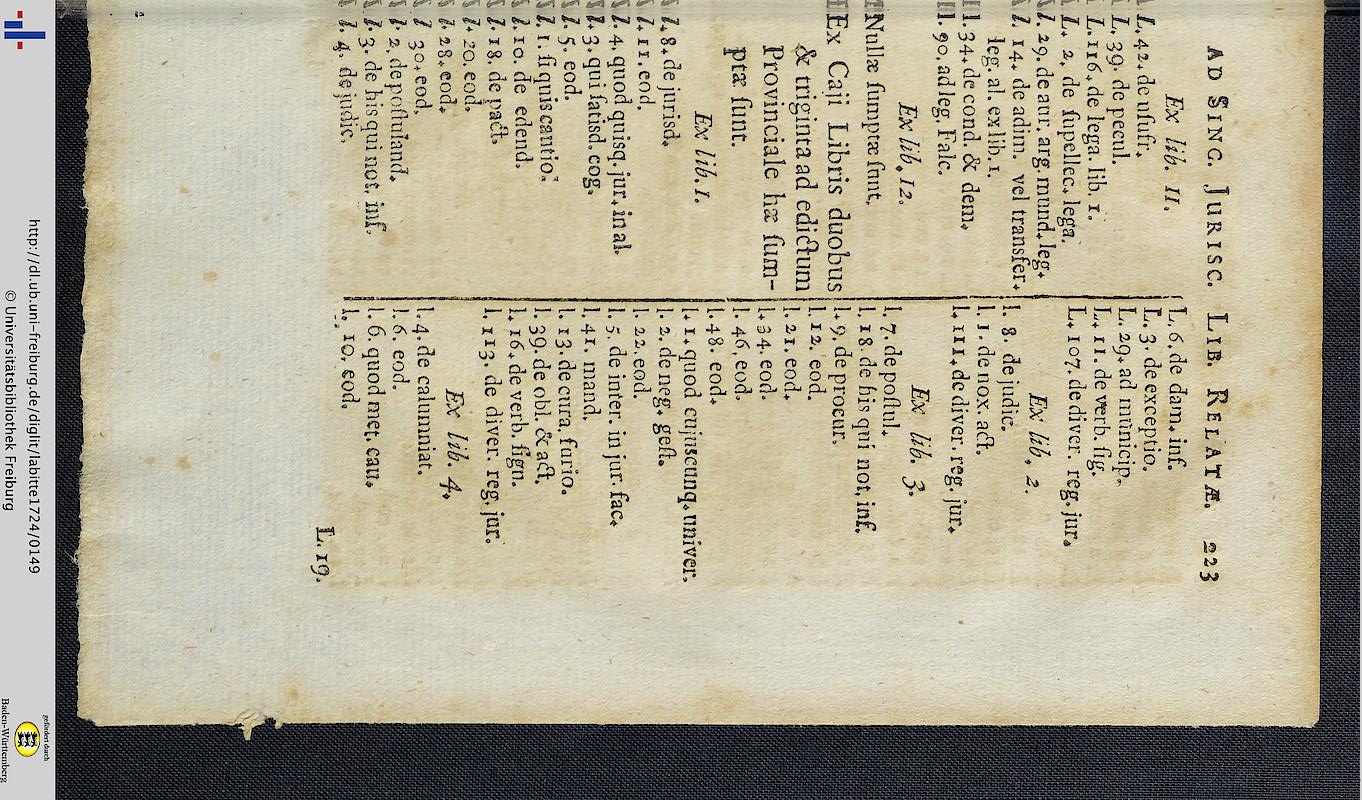 AD SING. JURISC. LIB. RELATÆ. 223
Ex lib. 11.
L. 42. de usufr.
L. 39. de pecul.
L. 116. de lega. lib. 1.
L. 2. de supellec. lega.
l. 29. de aur. arg. mund. leg.
l. 14. de adim. vel transfer.
leg. al. ex lib. 1.
ll. 34. de cond. & dem.
ll. 90. ad leg Falc.
Ex lib. 12.
Nullæ sumptæ sunt.
Ex Caji Libris duobus
& triginta ad edictum
Provinciale hæ sum-
ptæ sunt.
Ex lib. 1.
l. 8. de jurisd.
l. 11. eod.
l. 4. quod quisq. jur. in al.
l. 3. qui satisd. cog.
l. 5. eod.
l. 1. si quis cautio.
l. 10. de edend.
l. 18. de pact.
l. 20. eod.
l. 28. eod.
l. 30. eod.
l. 2. de postuland.
l. 3. de his qui not. inf.
l. 4. de judic.
L. 6. de dam. inf.
L. 3. de exceptio.
L. 29. ad municip.
L. 11. de verb. sig.
L. 107. de diver. reg. jur.
Ex lib. 2.
l. 8. de judic.
l. 1. de nox. act.
l. 111. de diver. reg. jur.
Ex lib. 3.
l. 7. de postul.
l. 18. de his qui not. inf.
l. 9. de procur.
l. 12. eod.
l. 21. eod.
l. 34. eod.
l. 46. eod.
l. 48. eod.
l. 1. quod cujuscunq. univer.
l. 2. de neg. gest.
l. 22. eod.
l. 5. de inter. in jur. fac.
l. 41. mand.
l. 13. de cura. furio.
l. 39. de obl. & act.
l. 16. de verb. sign.
l. 113. de diver. reg. jur.
Ex lib. 4.
l. 4. de calumniat.
l. 6. eod.
l. 6. quod met. cau.
l. 10. eod.
L. 19.
http://dl.ub.uni-freiburg.de/diglit/labitte1724/0149
© Universitätsbibliothek Freiburg
gefördert durch
Baden-Württemberg